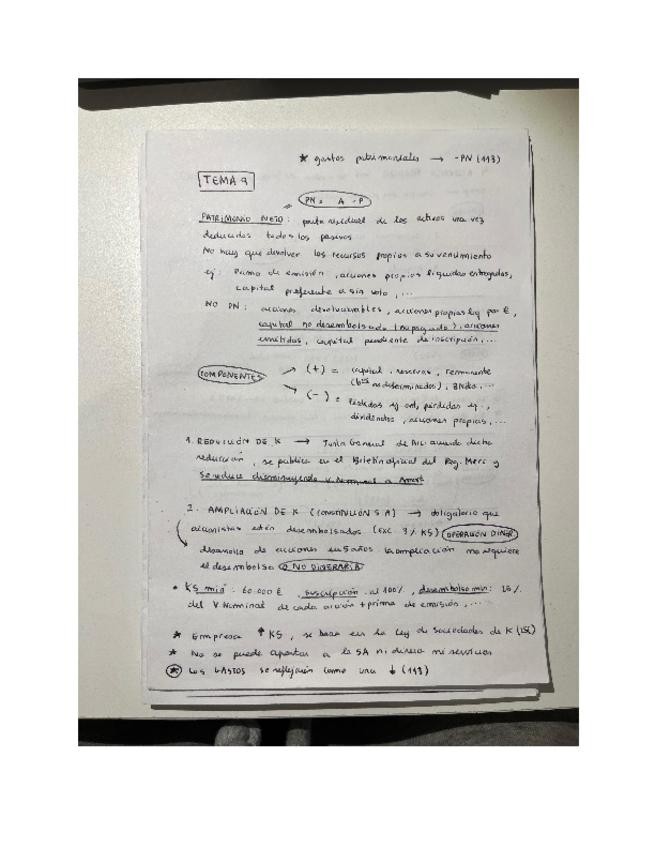 * gastos patrimoniales → -PN (113)
TEMA 9
PN = A - P
PATRIMONIO NETO: parte residual de los activos una vez
deducidos todos los pasivos
No hay que devolver los recursos propios a su vencimiento
ej: Prima de emisión, acciones propias liquidas entregadas,
capital preferente a sin voto, ...
NO PN: acciones , acciones propias liq por €,
capital no desembolsado (no pagado), acciones
emitidas, capital pendiente de inscripción, ...
COMPONENTES → (+) = capital, reservas, remanente
(bºs no determinados), BNdo, ...
→ (-) = Pérdidas ej ant, pérdidas ej.,
dividendos, acciones propias, ...
1. REDUCCIÓN DE K → Junta General de Acc acuerda dicha
reducción, se publica en el Boletín oficial del Reg. Merc y
se reduce disminuyendo V. Nominal o Amort
2. AMPLIACIÓN DE K (CONSTITUCIÓN S.A) → obligatorio que
accionistas estén desembolsados (exc. 3% KS) OPERACIÓN DINER
de acciones en 5 años la ampliación no requiere
el desembolso O NO DINERARIA
• KS min: 60.000 €, suscripción al 100%, desembolso min: 25%
del V. Nominal de cada acción + prima de emisión, ...
* Empresa ↑ KS, se basa en la Ley de Sociedades de K (LSC)
* No se puede aportar a la SA ni dinero ni servicios
* LOS GASTOS se reflejarán como una ↓ (113)